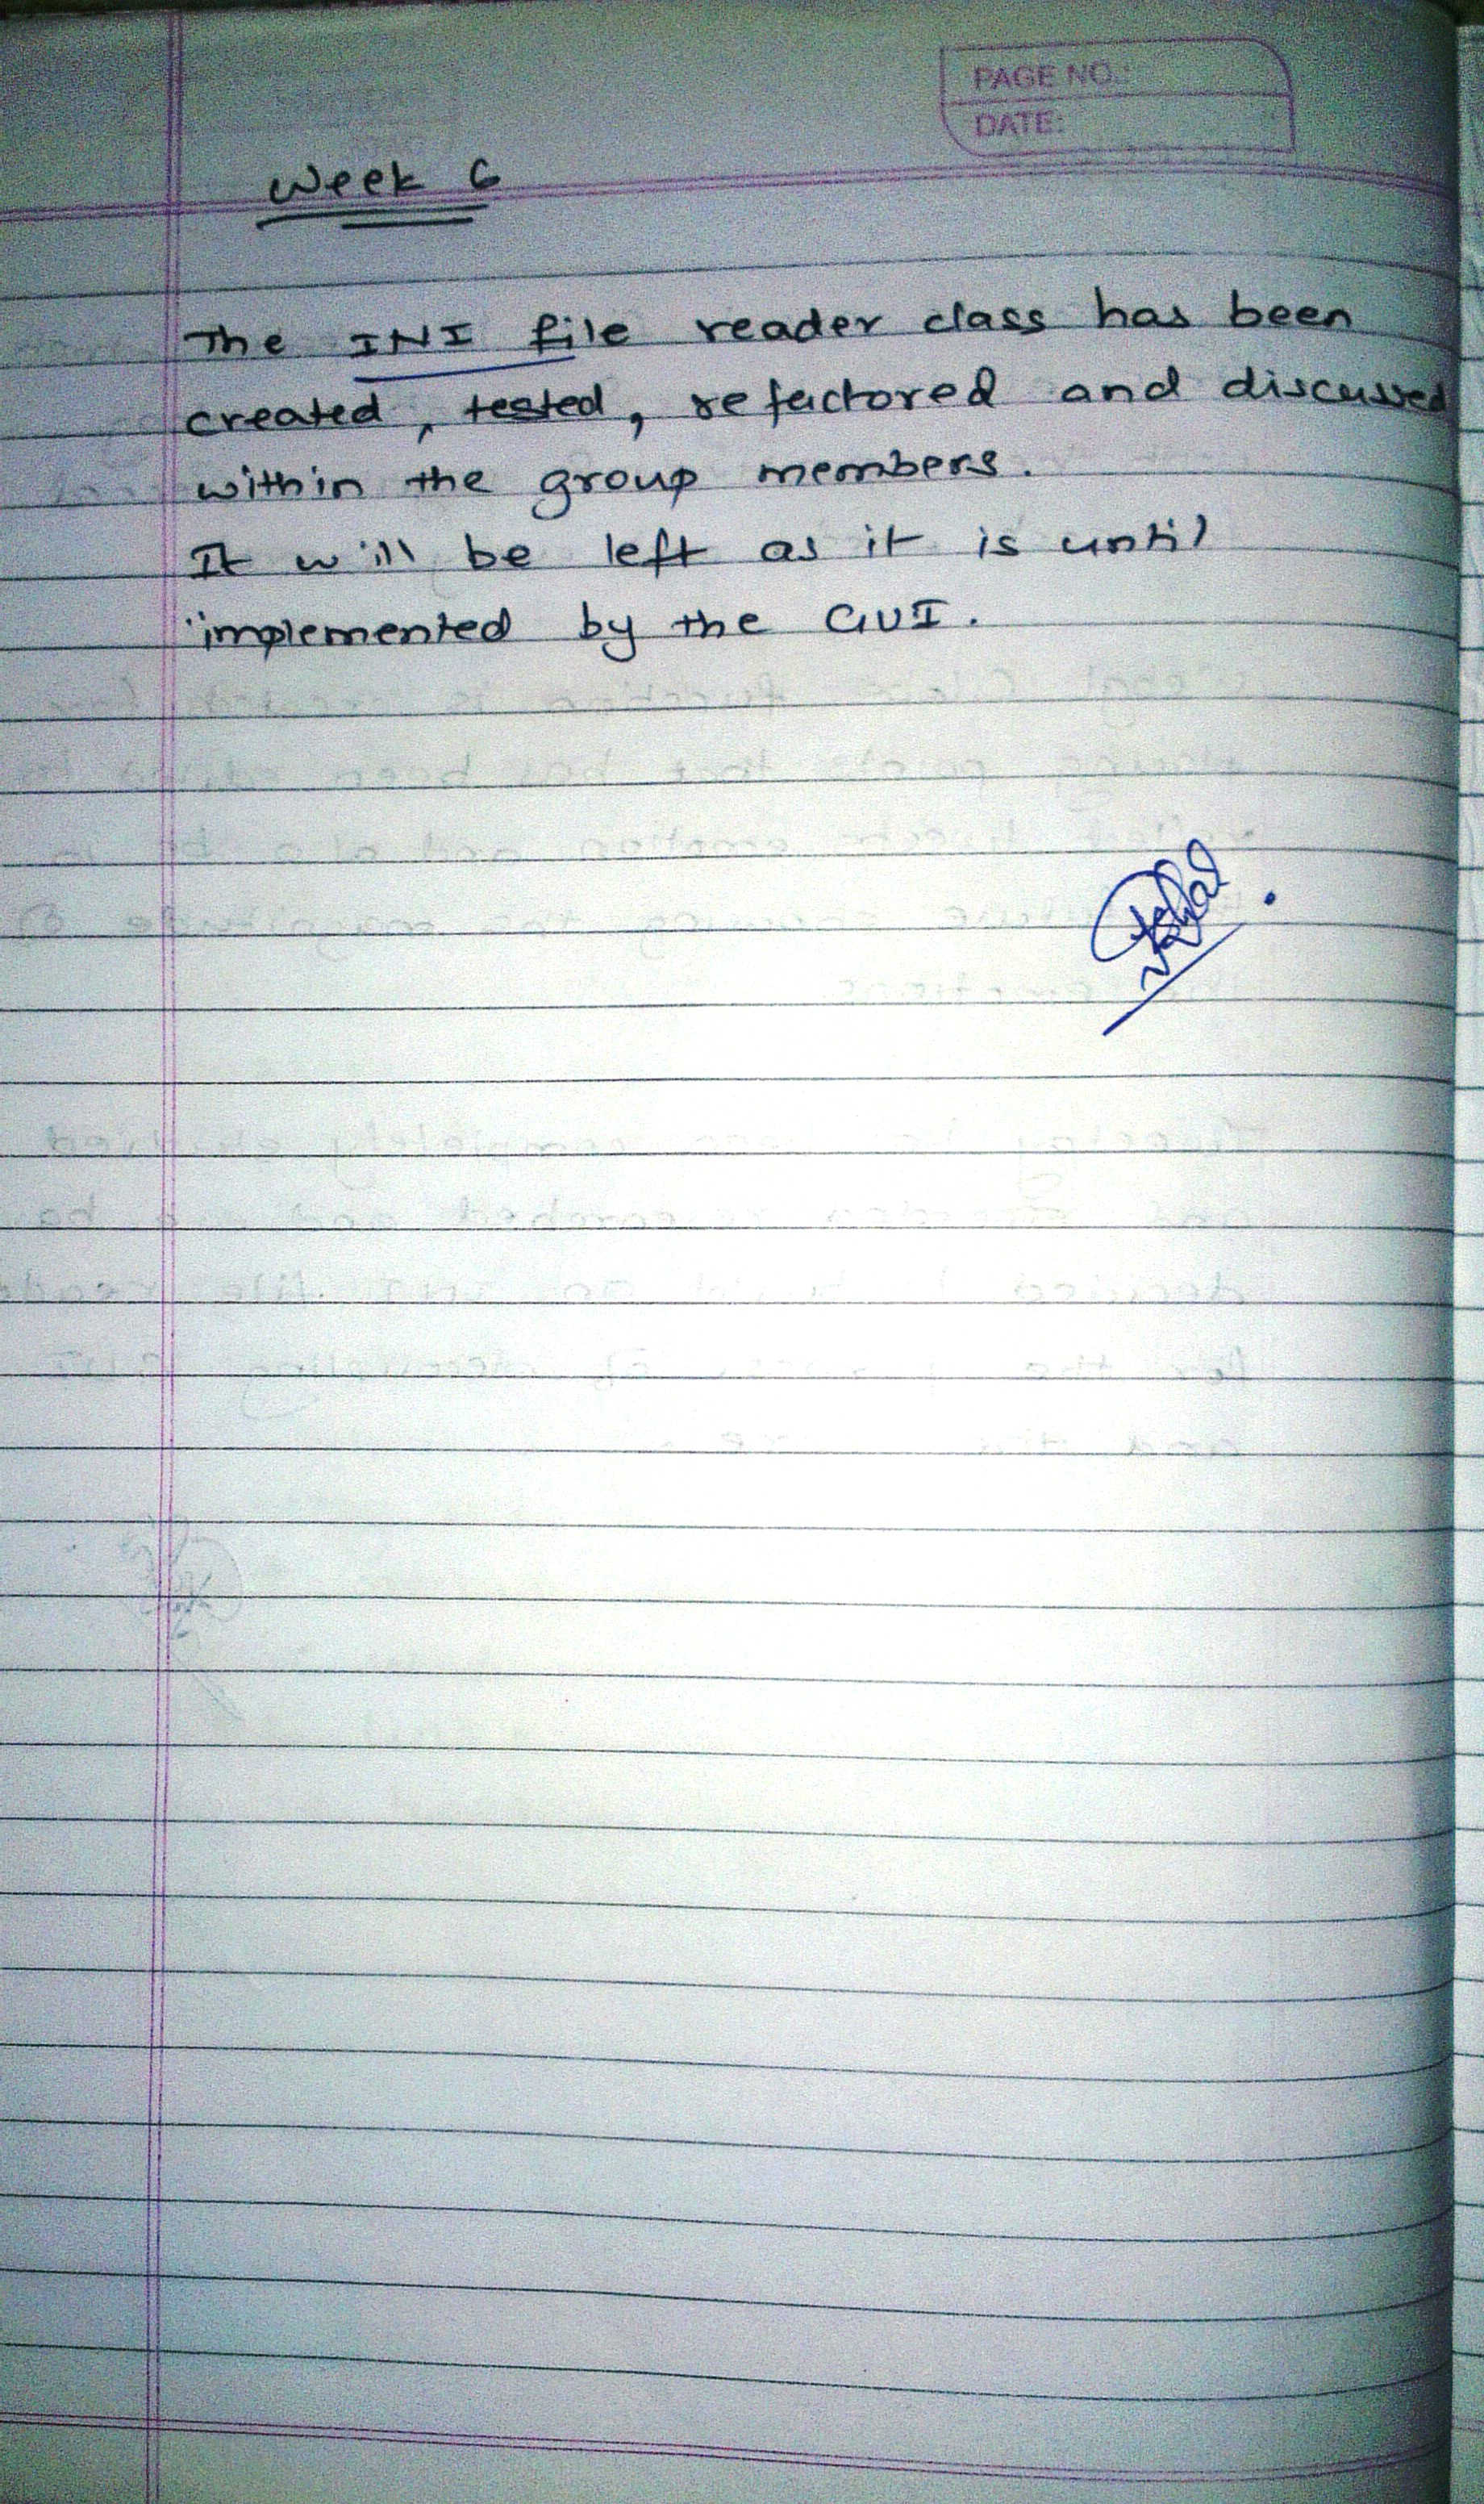 PAGE NO.:
DATE:
Week 6
The INI file reader class has been
created, tested, refactored and discussed
within the group members.
It will be left as it is until
implemented by the GUI.